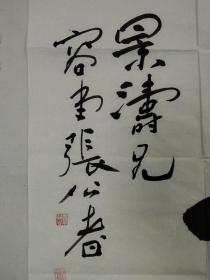 景濤兄
容堂張公者